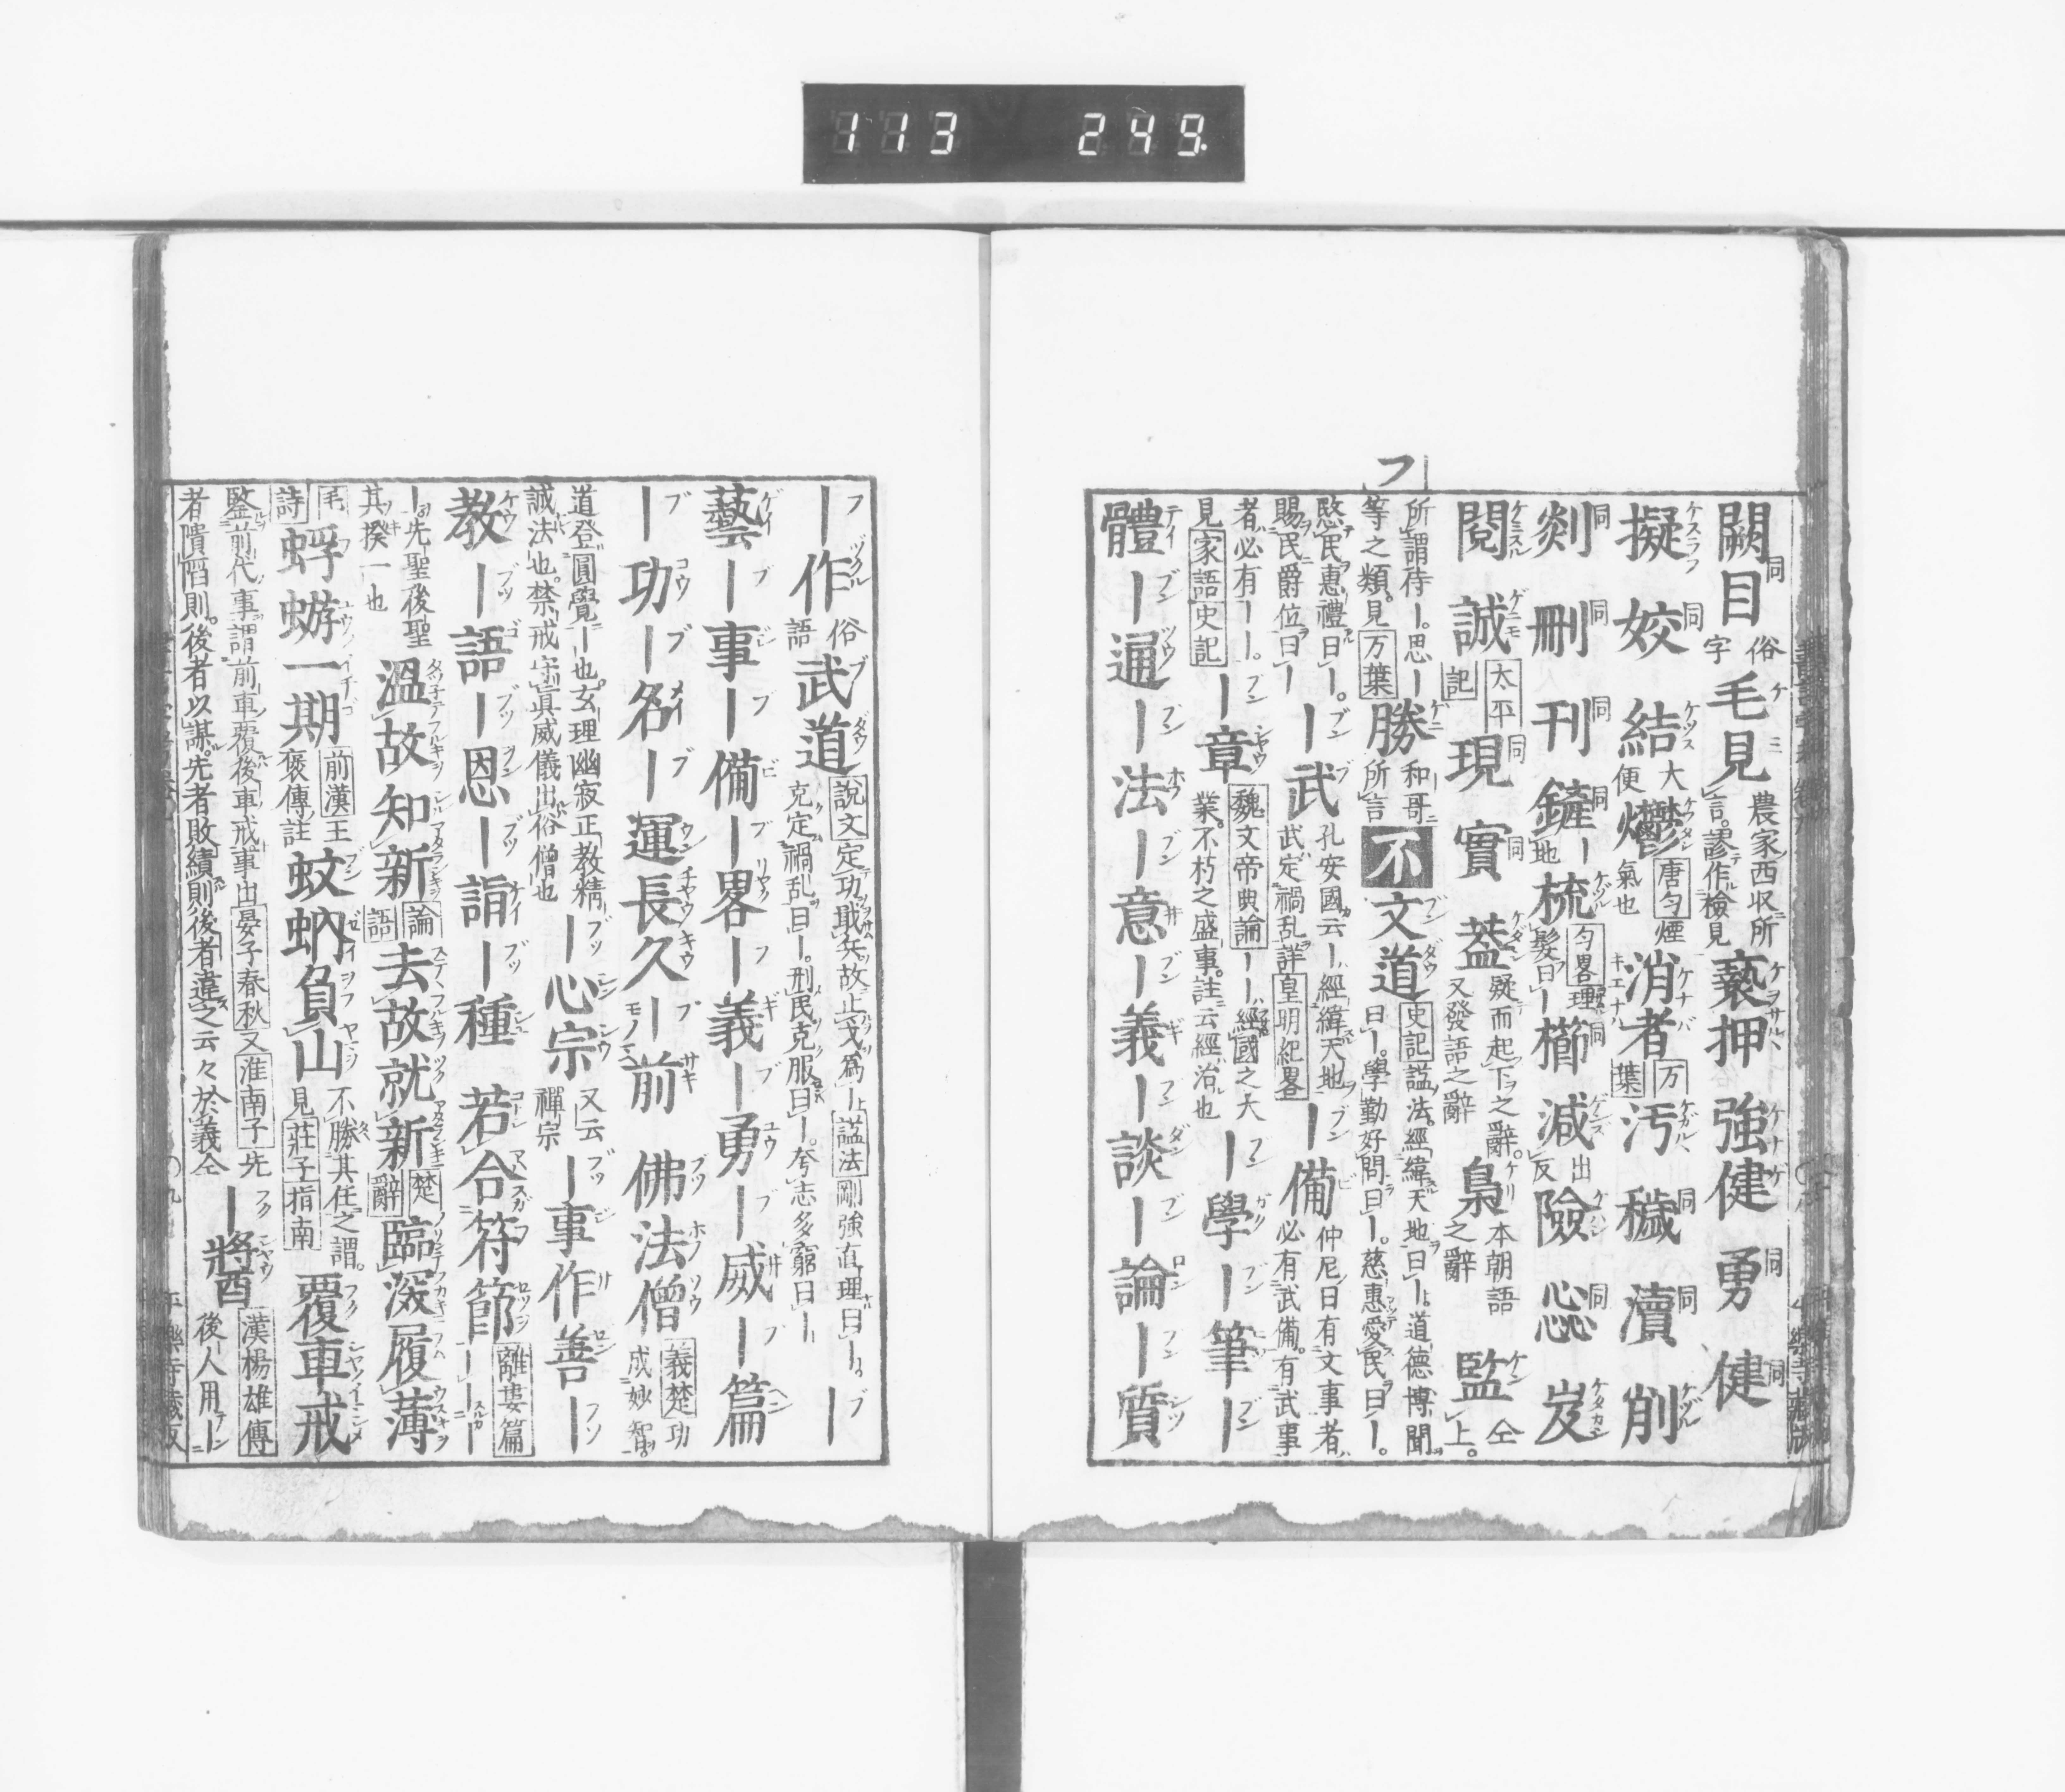 113 249.
フ
闕同目俗字毛見農家西収所言謬作檢見褻押強健勇同健同
擬姣同結大便鬱唐匀煙氣也消者万葉汚穢同瀆同削
剡同刪同刊同鏟同ー地梳匀畧理髮曰ー櫛同減出反險忩同岌
閲誠太平記現同實同葢疑而起下之辭又發語之辭梟本朝語之辭監仝上
所謂待ー思ー等之類見万葉勝和哥所言不文道史記謚法經緯天地曰ー道德博聞曰ー學勤好問曰ー慈惠愛民曰ー
愍民惠禮曰ー賜民爵位曰ーー武孔安國云ー經緯天地武定禍乱詳皇明紀畧ー備仲尼曰有文事者必有武備有武事
者必有ーー見家語史記ー章魏文帝典論ーー經國之大業不朽之盛事註云經治也ー學ー筆ー
體ー通ー法ー意ー義ー談ー論ー質
ー作俗語武道說文定功戢兵故止戈爲ー謚法剛強直理曰ー克定禍乱曰ー刑民克服曰ー夸志多窮曰ーー
藝ー事ー備ー畧ー義ー勇ー威ー篇
ー功ー名ー運長久ー前佛法僧義楚功成妙智
道登圓覺ー也玄理幽寂正教精誠法也禁戒守眞威儀出俗僧也ー心宗又云禪宗ー事作善ー
教ー語ー恩ー誯ー種若合符節離婁篇ーー
ー先聖後聖其揆一也溫故知新論語去故就新楚辭臨深履薄
毛詩蜉蝣一期前漢王褒傳註蚊蚋負山不勝其任之謂見莊子指南覆車戒
鑒前代事謂前車覆後車戒事出晏子春秋又淮南子先者隤陷則後者以謀先者敗績則後者違之云々於義仝ー醬漢楊雄傳後人用ー